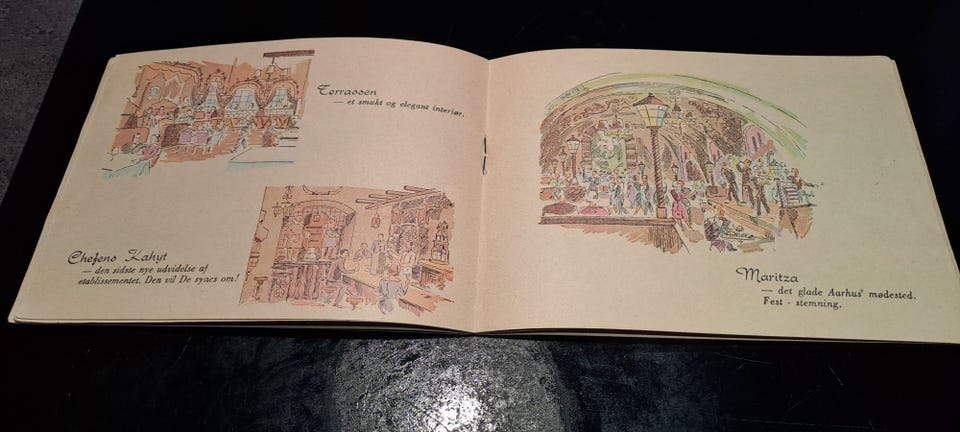 Terrassen
— et smukt og elegant interiør.
Chefens Kahyt
— den sidste nye udvidelse af
etablissementet. Den vil De synes om!
Maritza
— det glade Aarhus' mødested.
Fest - stemning.